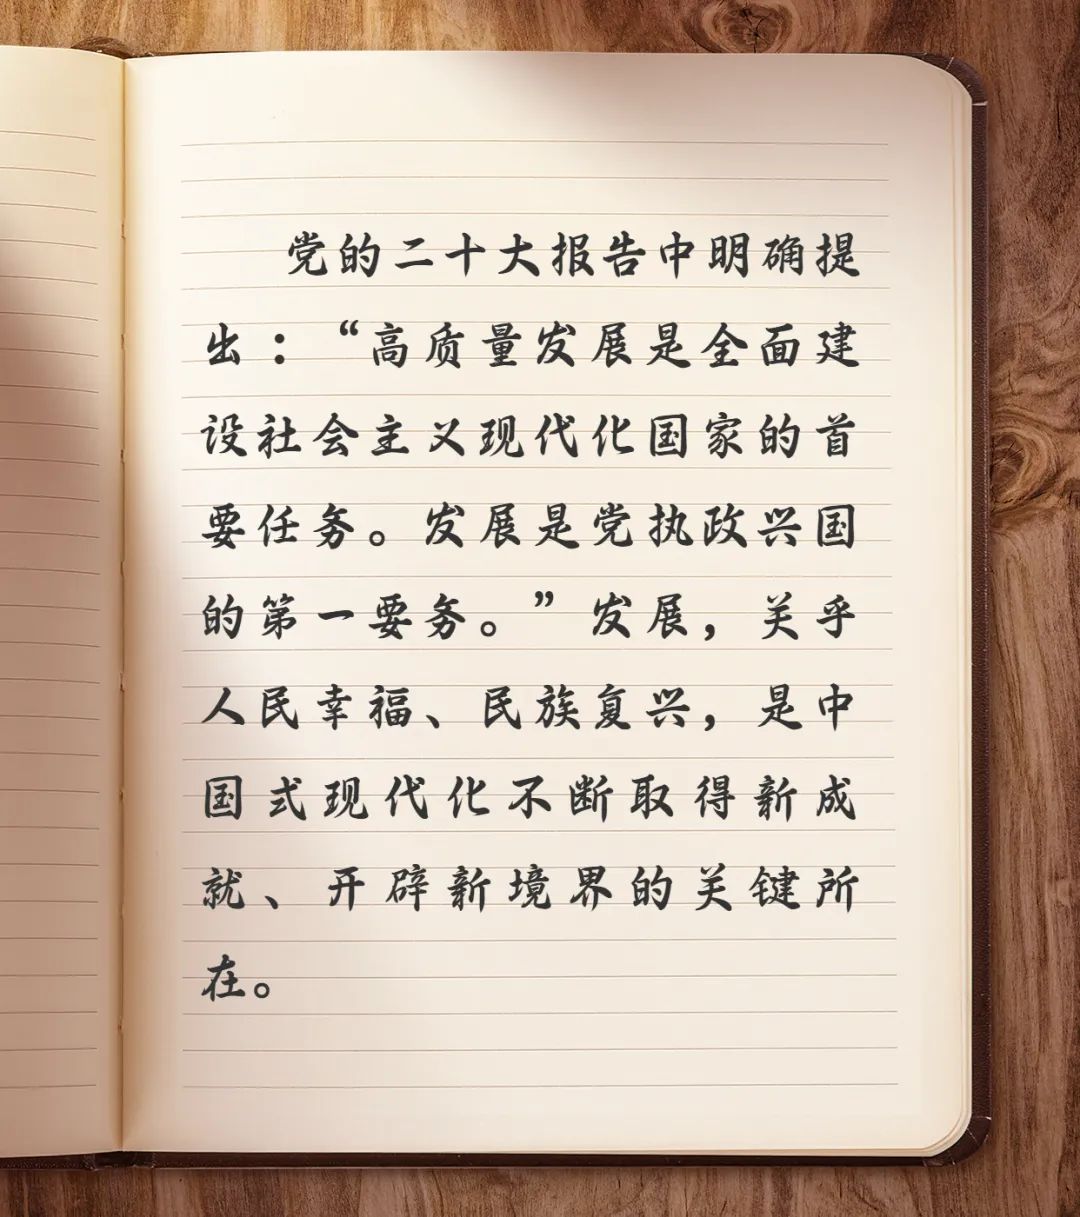 党的二十大报告中明确提
出：“高质量发展是全面建
设社会主义现代化国家的首
要任务。发展是党执政兴国
的第一要务。”发展，关乎
人民幸福、民族复兴，是中
国式现代化不断取得新成
就、开辟新境界的关键所
在。